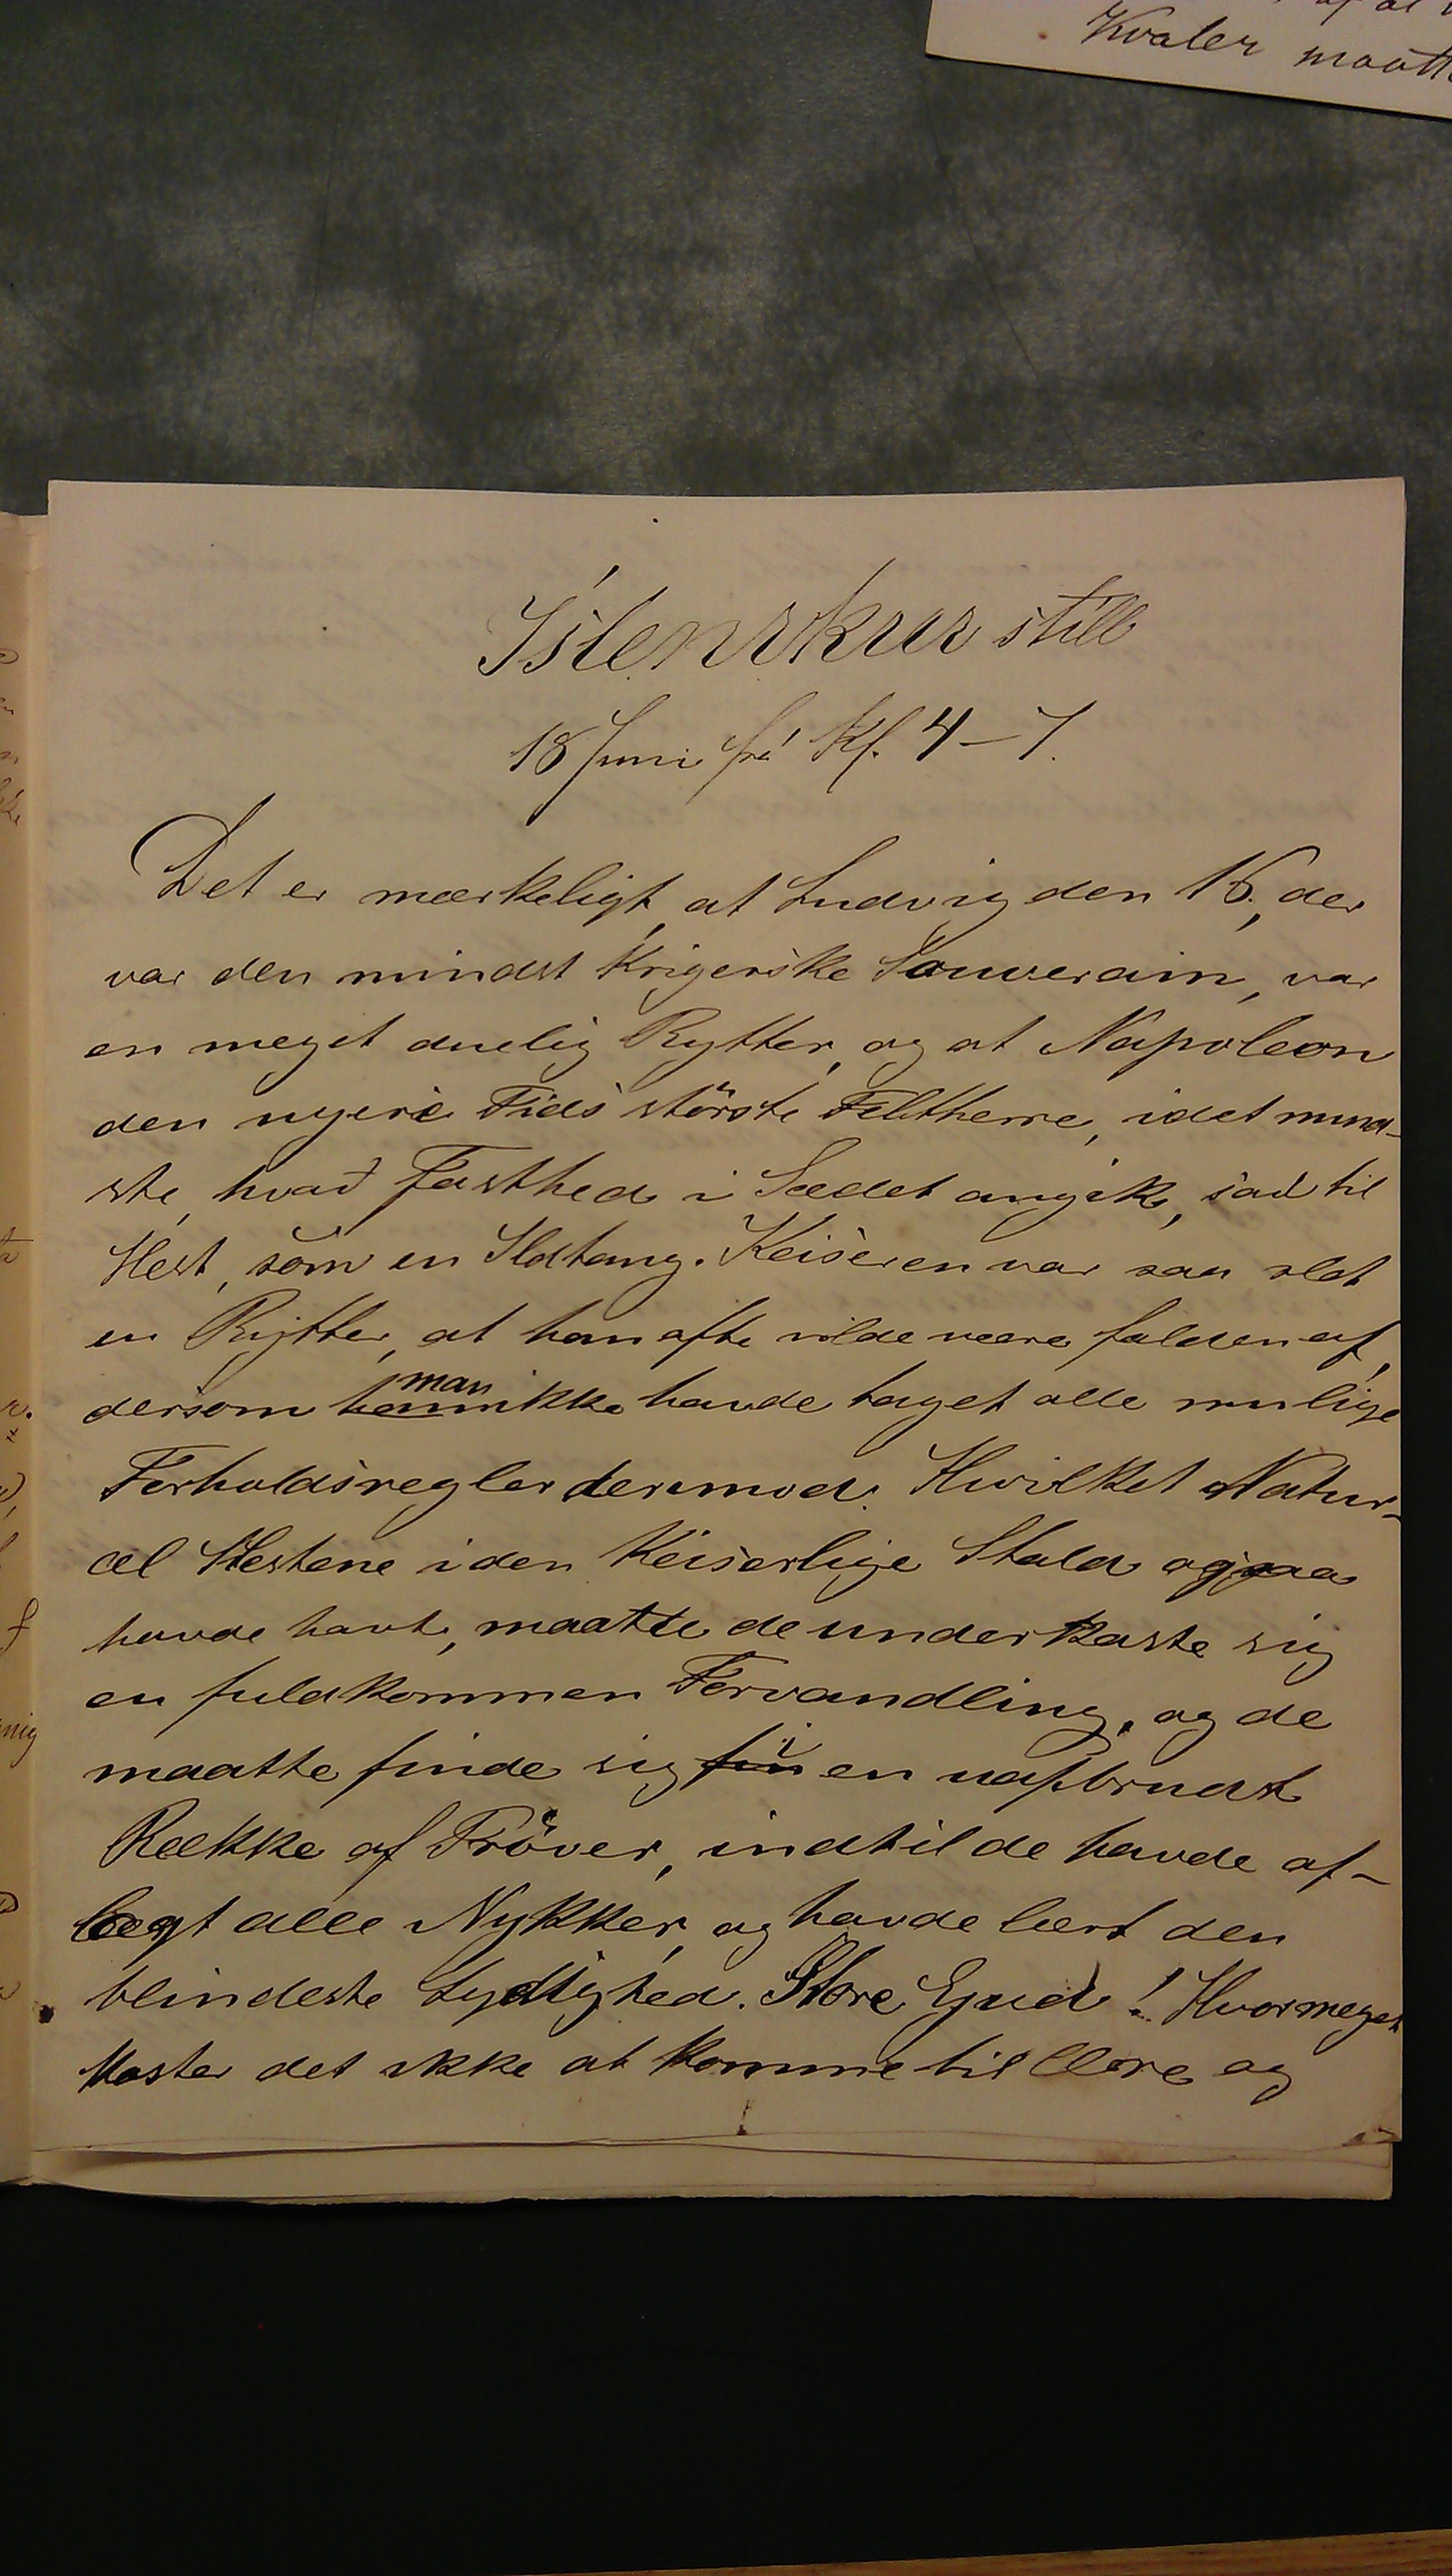 Kvaler maatte
Íslenzkur stíll
18 Juni frá Kl. 4 – 7.
Det er mærkeligt, at Ludvig den 16., der
var den mindst Krigerske Souverain, var
en meget duelig Rytter, og at Napoleon
den nyere Tids störste Feltherre, idet mind-
ste, hvad Fasthed i Sædet angik, sad til
Hest, som en Ildtang. Keiseren var saa slet
en Rytter, at han ofte vilde være falden af,
dersom han man ikke havde taget alle mulige
Forholdsregler derimod. Hvilket Natur-
el Hestene i den Keiserlige Stald ogsaa
havde havt, maatte de underkaste sig
en fuldkommen Forvandling, og de
maatte finde sig i en uafbrudt
Række af Pröver, indtil de havde af-
lagt alle Nykker, og havde lært den
blindeste Lydighed. Store Gud! Hvormeget
Koster det ikke at Komme til Ære og